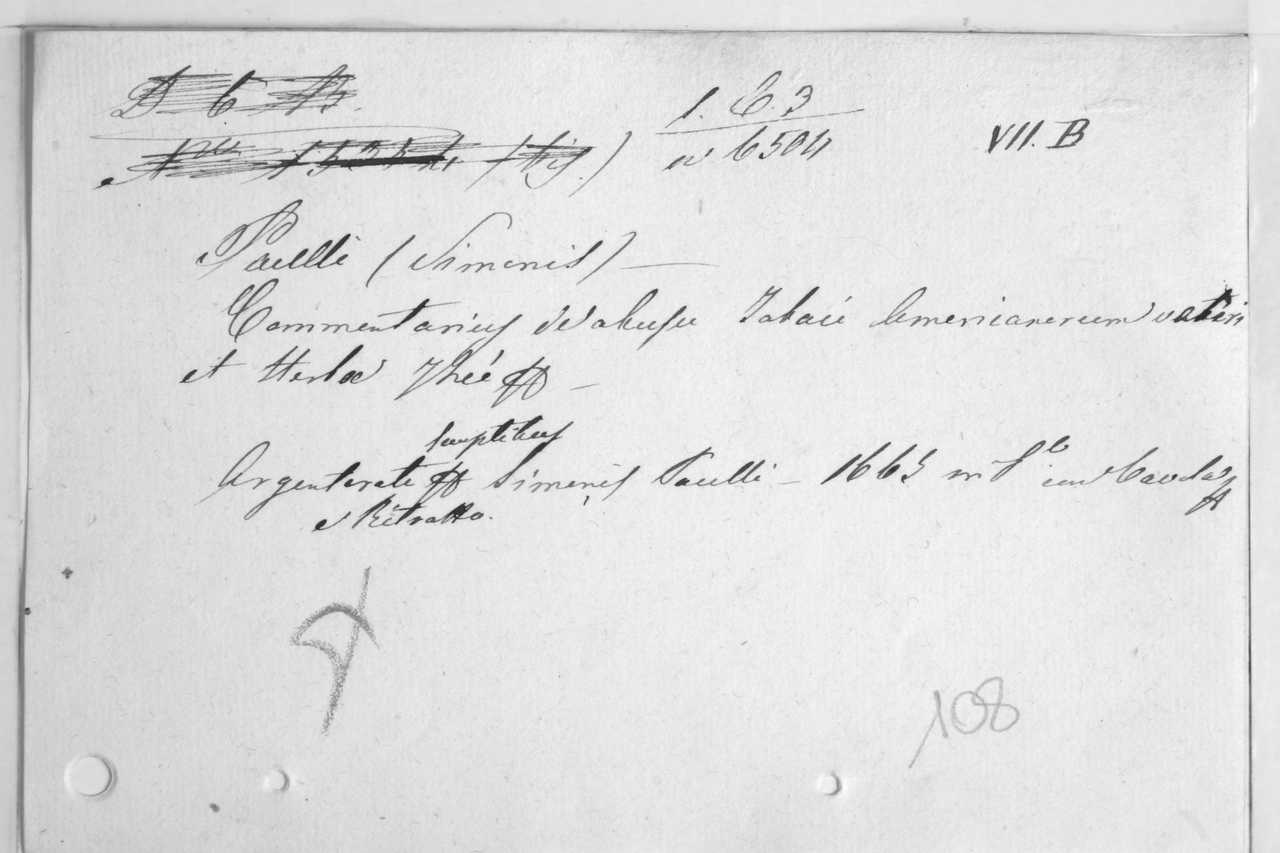 1. C. 3
6504
VII. B
Paulli (Simonis) —
Commentarius de abusu Tabaci Americanorum veteri
et Herbæ Theé —
sumptibus
Argentorati Simonis Paulli — 1665 in con
e Ritratto.
108